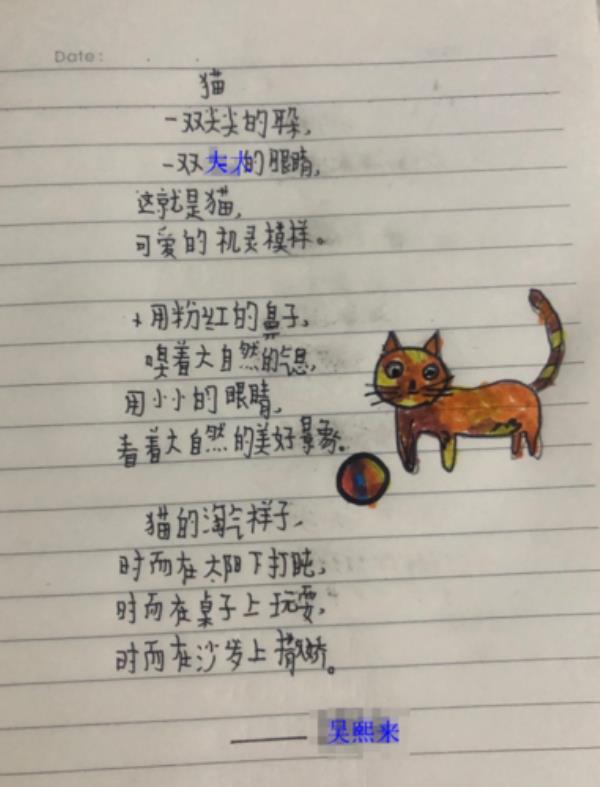 Date:
猫
一双尖尖的耳朵,
一双大大的眼睛,
这就是猫,
可爱的机灵模样。
用粉红的鼻子,
嗅着大自然的气息,
用小小的眼睛,
看着大自然的美好景象。
猫的淘气样子,
时而在太阳下打盹,
时而在桌子上玩耍,
时而在沙发上撒娇。
—— 吴熙来